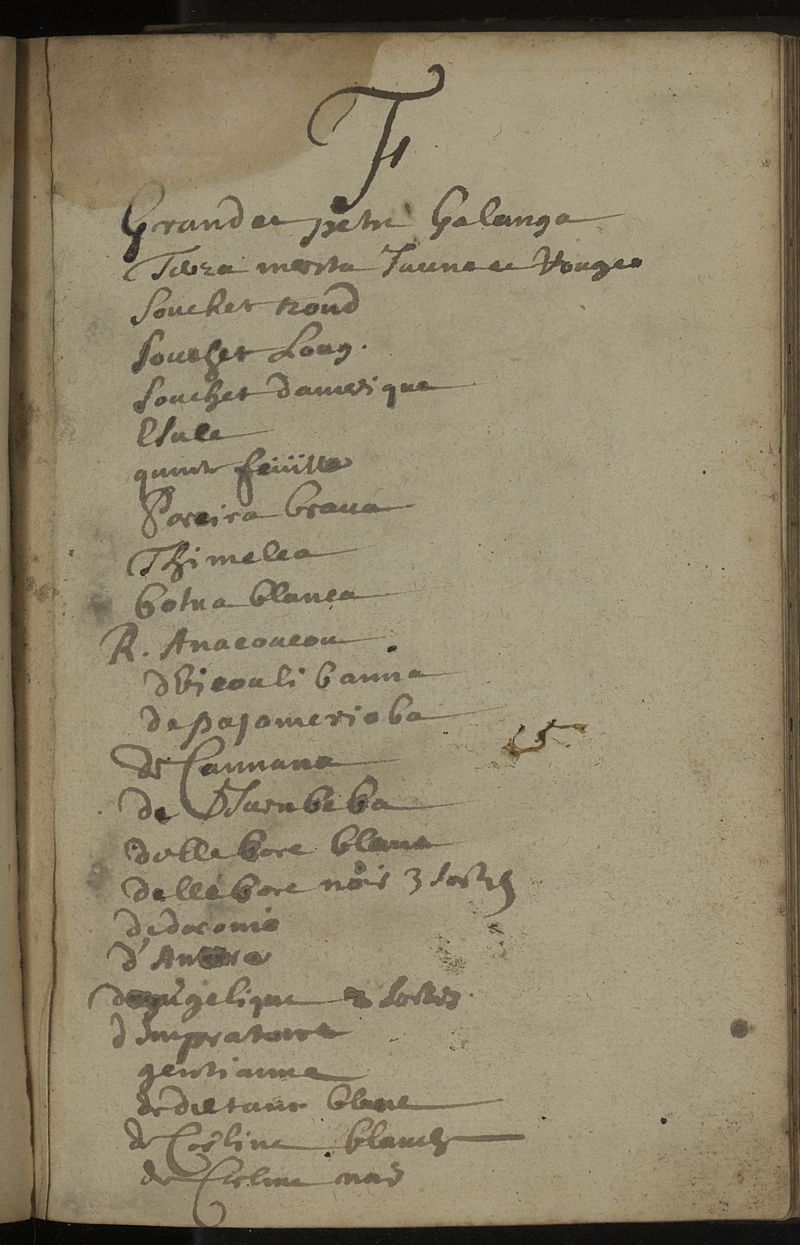 F
Grand et petit Galanga
Terra merita Jaune et Rouge
Souchet rond
Souchet Long.
Souchet damerique
Esule
quinte feüille
Pareira braua
Thimelea
botua blanca
R. Anacoucou
dbicouli banna
de pajomerioba
de Cannana
de Jurubeba
dellebore blanc
dellebore noir 3 sortes
de doronic
d'Antora
dangelique 2 sortes
dimpratoire
gentianne
de dictame blanc
de Carline blanch
de Carline noir